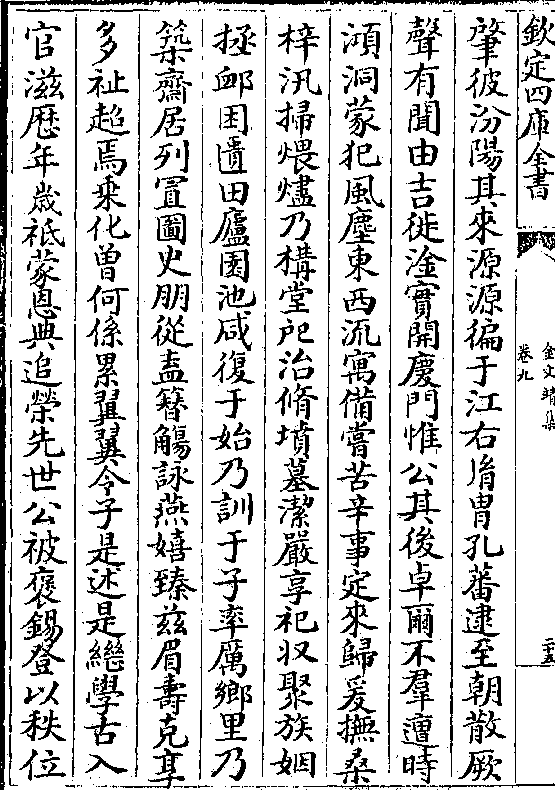 欽定四庫全書
金文靖集
卷九
二十五
肇彼汾陽其來源源徧于江右胄孔蕃逮至朝散厥
聲有聞由吉徙淦實開慶門惟公其後卓爾不羣遭時
澒洞蒙犯風塵東西流寓備嘗苦辛事定來歸爰撫桑
梓汛掃煨燼乃構堂戺治脩墳墓潔嚴享祀収聚族姻
拯䘏困匱田廬園池咸復于始乃訓于子率厲鄉里乃
築齋居列寘圖史朋從盍簪觴詠燕嬉臻兹眉壽克享
多祉超焉乘化曾何係累翼翼令子是述是繼學古入
官滋歴年歲祗蒙恩典追榮先世公被褒錫登以秩位